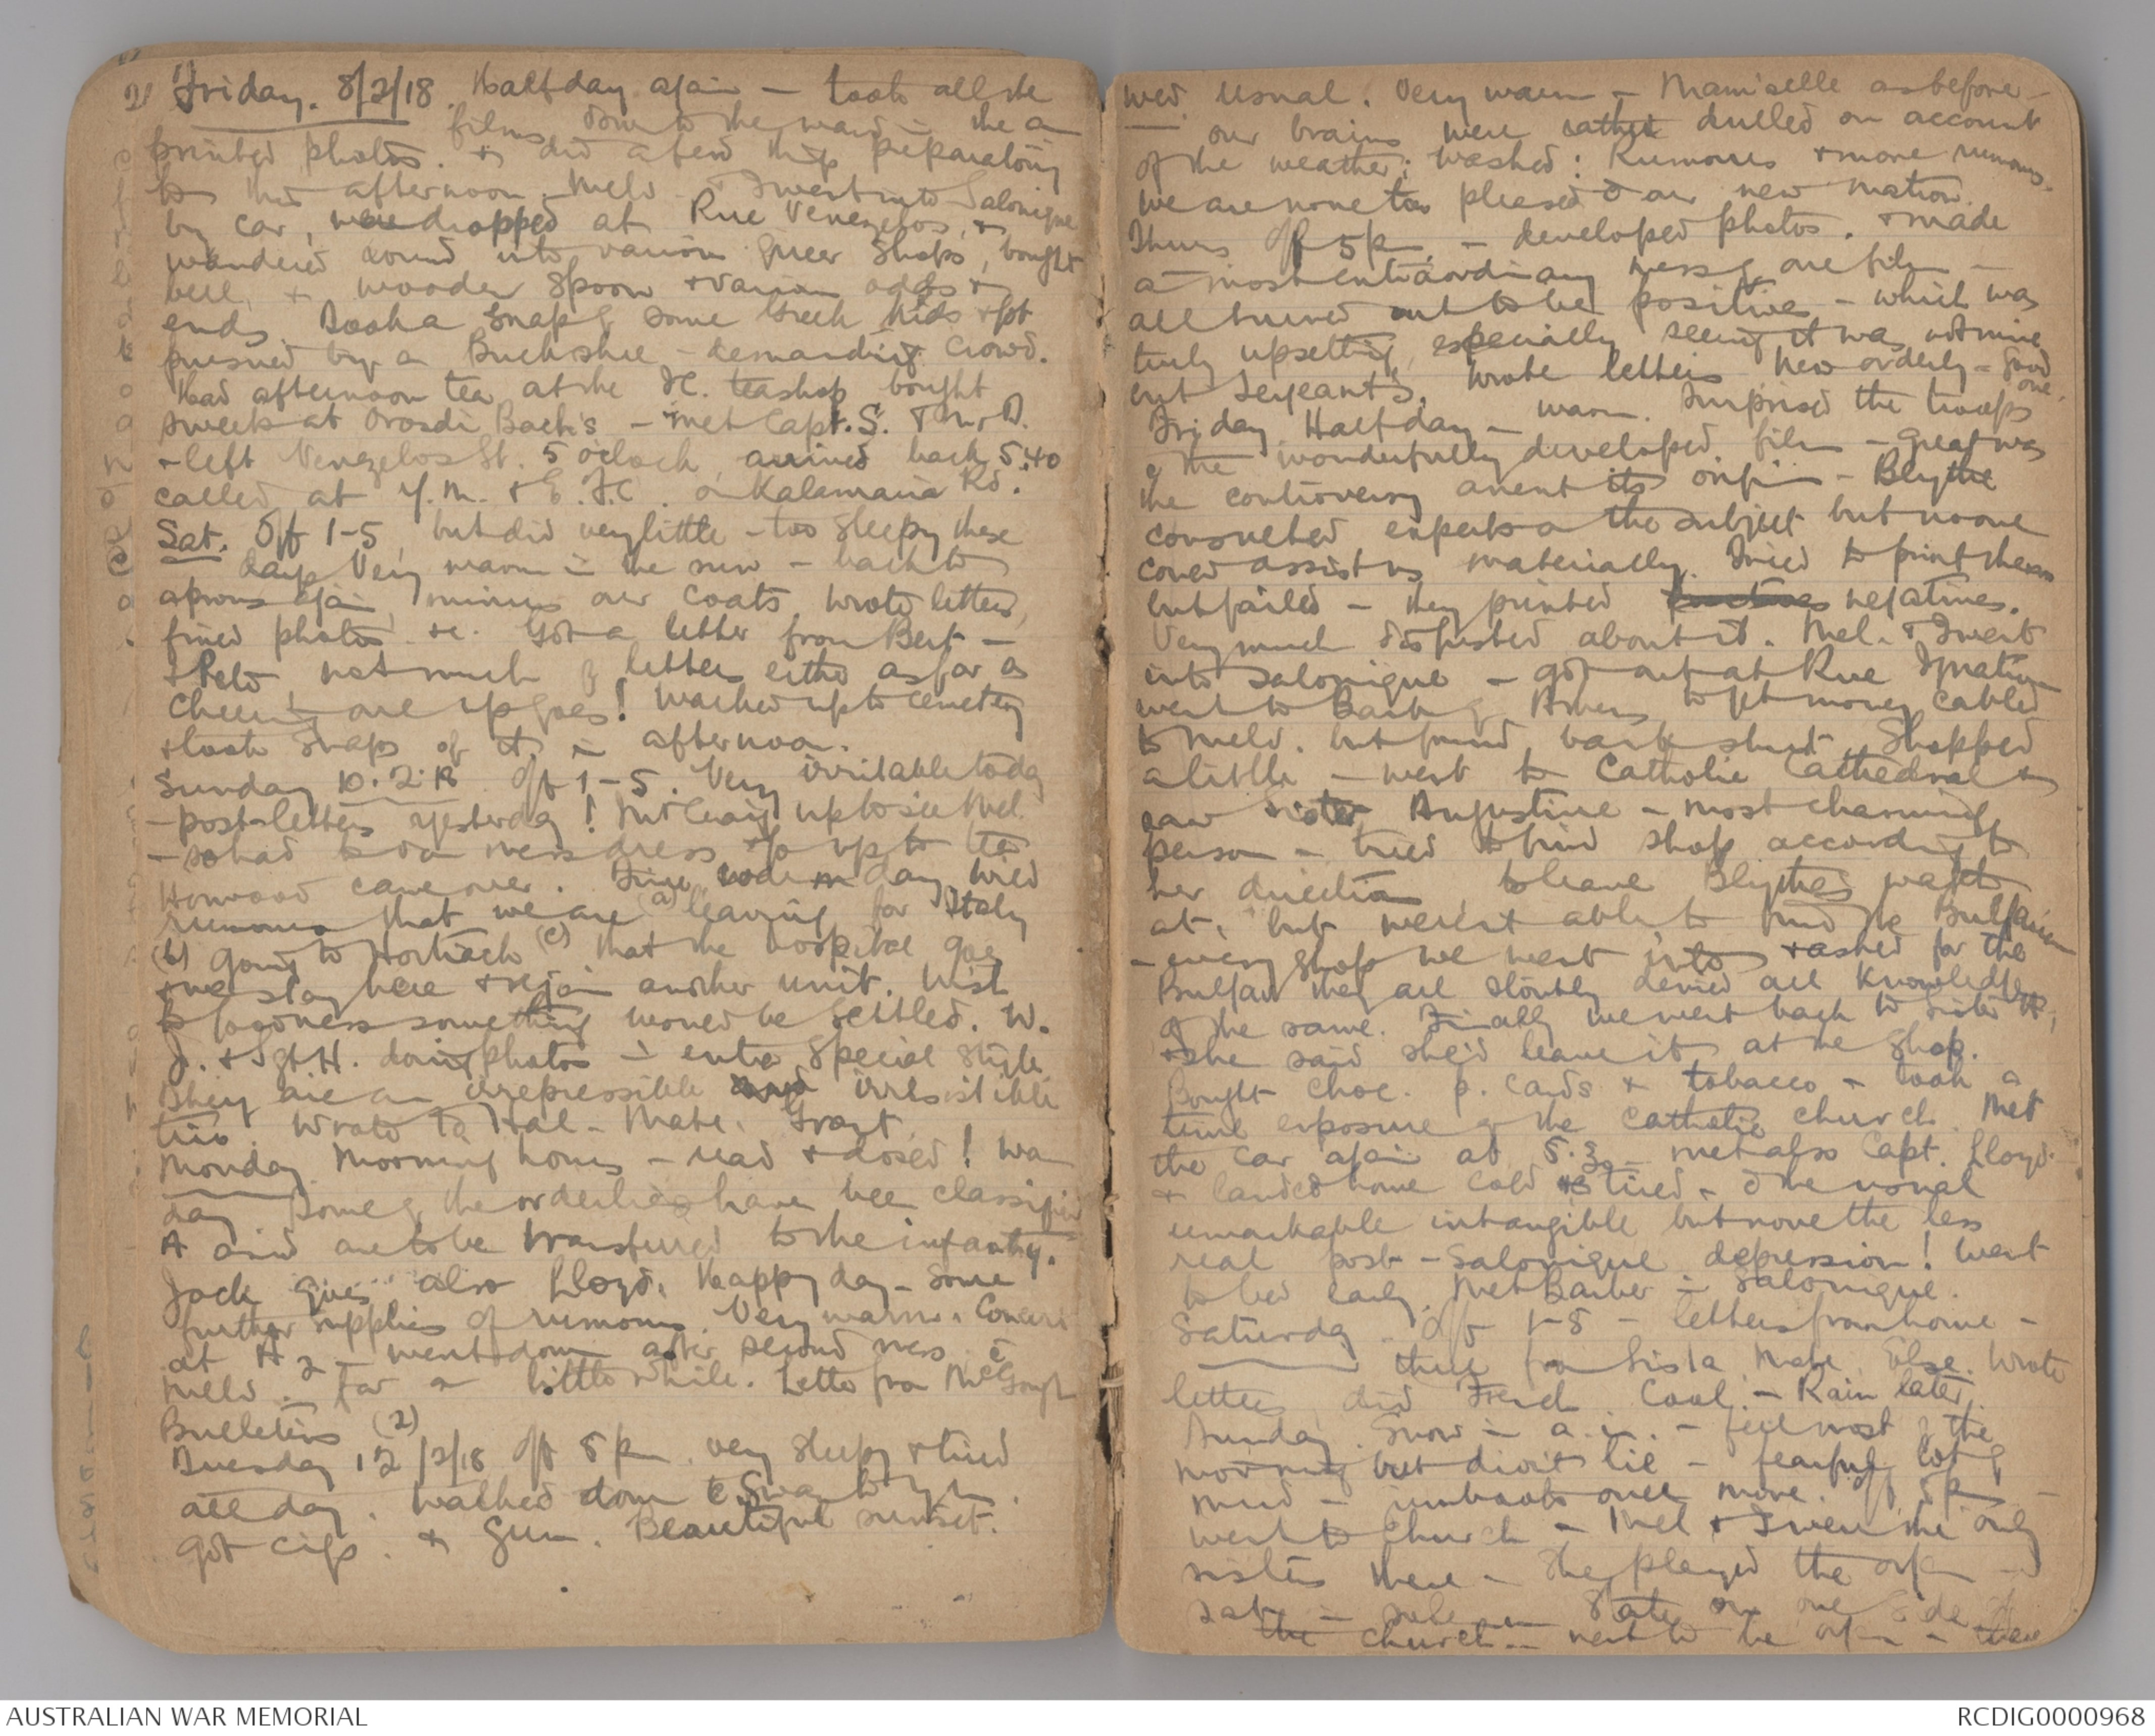 Friday. 8/2/18. Half day again – took all the
films down to the ward in the a
printed photos. & did a few things preparatory
to the afternoon. Meld & I went into Salonique
by car, were dropped at Rue Venezelos, &
wandered round into various queer shops, bought
bell, & wooden spoon & various odds &
ends. Took a snap of some Greek kids & got
pursued by a Buckshee – demanding crowd.
Had afternoon tea at the teashop bought
sweets at Orosdi Back's – met Capt. S.
& left Venezelos St. 5 o'clock, arrived back 5.40
called at Y.M. & E.F.C. on Kalamaria Rd.
Sat. Off 1-5, but did very little – too sleepy these
days. Very warm in the sun – back to
aprons again, minus our coats. Wrote letters,
fixed photos &c. Got a letter from Bert –
not much of letters either as far as
cheering one up goes! Walked up to cemetery
& took snaps of it in afternoon.
Sunday 10.2.18 Off 1-5. Very irritable today
– post-letters yesterday! Mr Craig up to see Mel.
– so had to don mess dress & go up to tea
Horwood came over. day. Wild
rumours that we are (a) leaving for Italy
(b) Going to Hortiach (c) that the hospital goes
& we stay here & rejoin another unit. Wish
to goodness something would be settled. W.
J. & Sgt H. doing photos in extra special style
They are an irrepressible and irresistible
trio. Wrote to Hal – Mate. Grant.
Monday Morning hours – read & dosed! Wa
day. Some of the orderlies have been classified
A and are to be transferred to the infantry.
Jack also Lloyd. Happy day – some
further supplies of rumours. Very warm. Concert
at H2 – went down after second mess c̄
Meld. for a little while. Letter from McGough
Bulletins (2)
Tuesday 12/2/18 off 5 pm. very sleepy & tired
all day. Walked down c̄ Swan to Y.M.
got cigs. & gum. Beautiful sunset.
Wed usual. Very warm – Mam'selle as before –
our brains were rather dulled on account
of the weather: Washed: Rumours & more rumours.
We are none too pleased c̄ our new matron.
Thurs off 5 pm – developed photos. & made
a most extraordinary mess of one film –
all turned out to be positive – which was
truly upsetting, especially seeing it was not mine
but Sergeant's. Wrote letters New orderly – good
one.
Friday Half day – warm. Surprised the troops
c̄ the wonderfully developed film – great was
the controversy anent its origin – Blythe
consulted experts on the subject but no one
could assist us materially. Tried to print them
but failed – they printed negatives.
Very much disgusted about it. Mel. & I went
into Salonique – got out at Rue Ignatia
went to Bank of Athens to get money cabled
to Meld. but found bank shut. Shopped
a little – went to Catholic Cathedral &
saw Sister Augustine – most charming
person – tried to find shop according to
her direction to leave Blythe's watch
at, but weren't able to find the Bulgarian
– every shop we went into & asked for the
Bulgar they all stoutly denied all knowledge
of the same. Finally we went back to Sister A,
& she said she'd leave it at the shop.
Bought choc. p. cards & tobacco – took a
time exposure of the Catholic church. Met
the car again at 5.30 – met also Capt. Lloyd.
& landed home cold & tired – c̄ the usual
remarkable intangible but none the less
real post-Salonique depression! Went
to bed early. Met Barber in Salonique.
Saturday. Off 1-5 – letters from home –
three from Sista, Mate, Else. Wrote
letters did French Cool. – Rain later.
Sunday. Snow in a.m. – fell most of the
morning but didn't lie – fearful lot of
mud – gumboots once more. Off 5 pm –
went to church – Mel & I were the only
sisters there – She played the organ – I
sat in state on one side of
the church – next to the organ – there